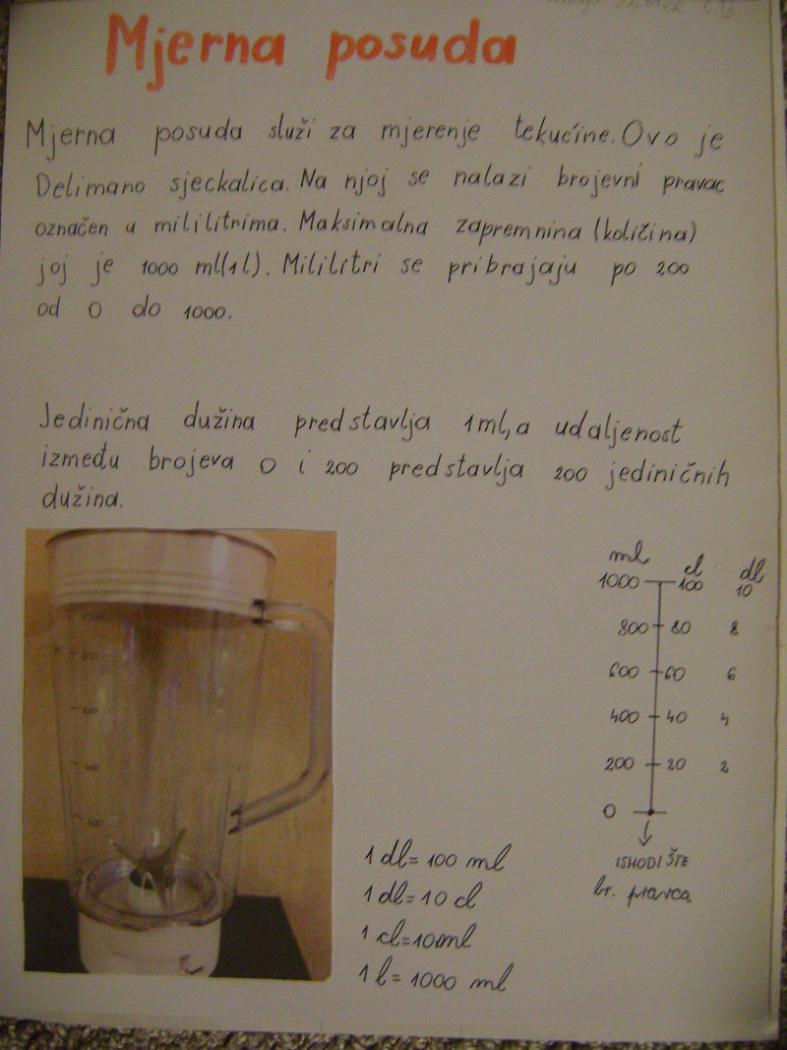 Mjerna posuda
Mjerna posuda služi za mjerenje tekućine. Ovo je
Delimano sjeckalica. Na njoj se nalazi brojevni pravac
označen u mililitrima. Maksimalna zapremnina (količina)
joj je 1000 ml(1l). Mililitri se pribrajaju po 200
od 0 do 1000.
Jedinična dužina predstavlja 1ml, a udaljenost
između brojeva 0 i 200 predstavlja 200 jediničnih
dužina.
ml cl dl
1000 100 10
800 80 8
600 60 6
400 40 4
200 20 2
0
ISHODIŠTE
br. pravca
1 dl= 100 ml
1 dl= 10 cl
1 cl=10ml
1 l= 1000 ml